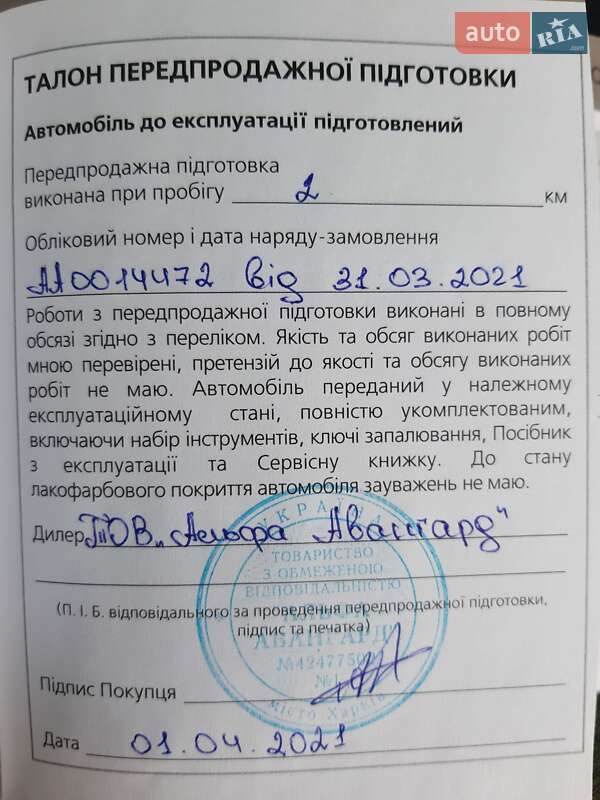 auto RIA.com
ТАЛОН ПЕРЕДПРОДАЖНОЇ ПІДГОТОВКИ
Автомобіль до експлуатації підготовлений
Передпродажна підготовка
виконана при пробігу 2 км
Обліковий номер і дата наряду-замовлення
АА0014472 від 31.03.2021
Роботи з передпродажної підготовки виконані в повному
обсязі згідно з переліком. Якість та обсяг виконаних робіт
мною перевірені, претензій до якості та обсягу виконаних
робіт не маю. Автомобіль переданий у належному
експлуатаційному стані, повністю укомплектованим,
включаючи набір інструментів, ключі запалювання, Посібник
з експлуатації та Сервісну книжку. До стану
лакофарбового покриття автомобіля зауважень не маю.
УКРАЇНА
Дилер ТОВ „Альфа Авангард"
ТОВАРИСТВО
З ОБМЕЖЕНОЮ
ВІДПОВІДАЛЬНІСТЮ
(П. І. Б. відповідального за проведення передпродажної підготовки,
підпис та печатка)
АВАНГАРД
№1
місто Харків
Підпис Покупця
Дата 01.04.2021